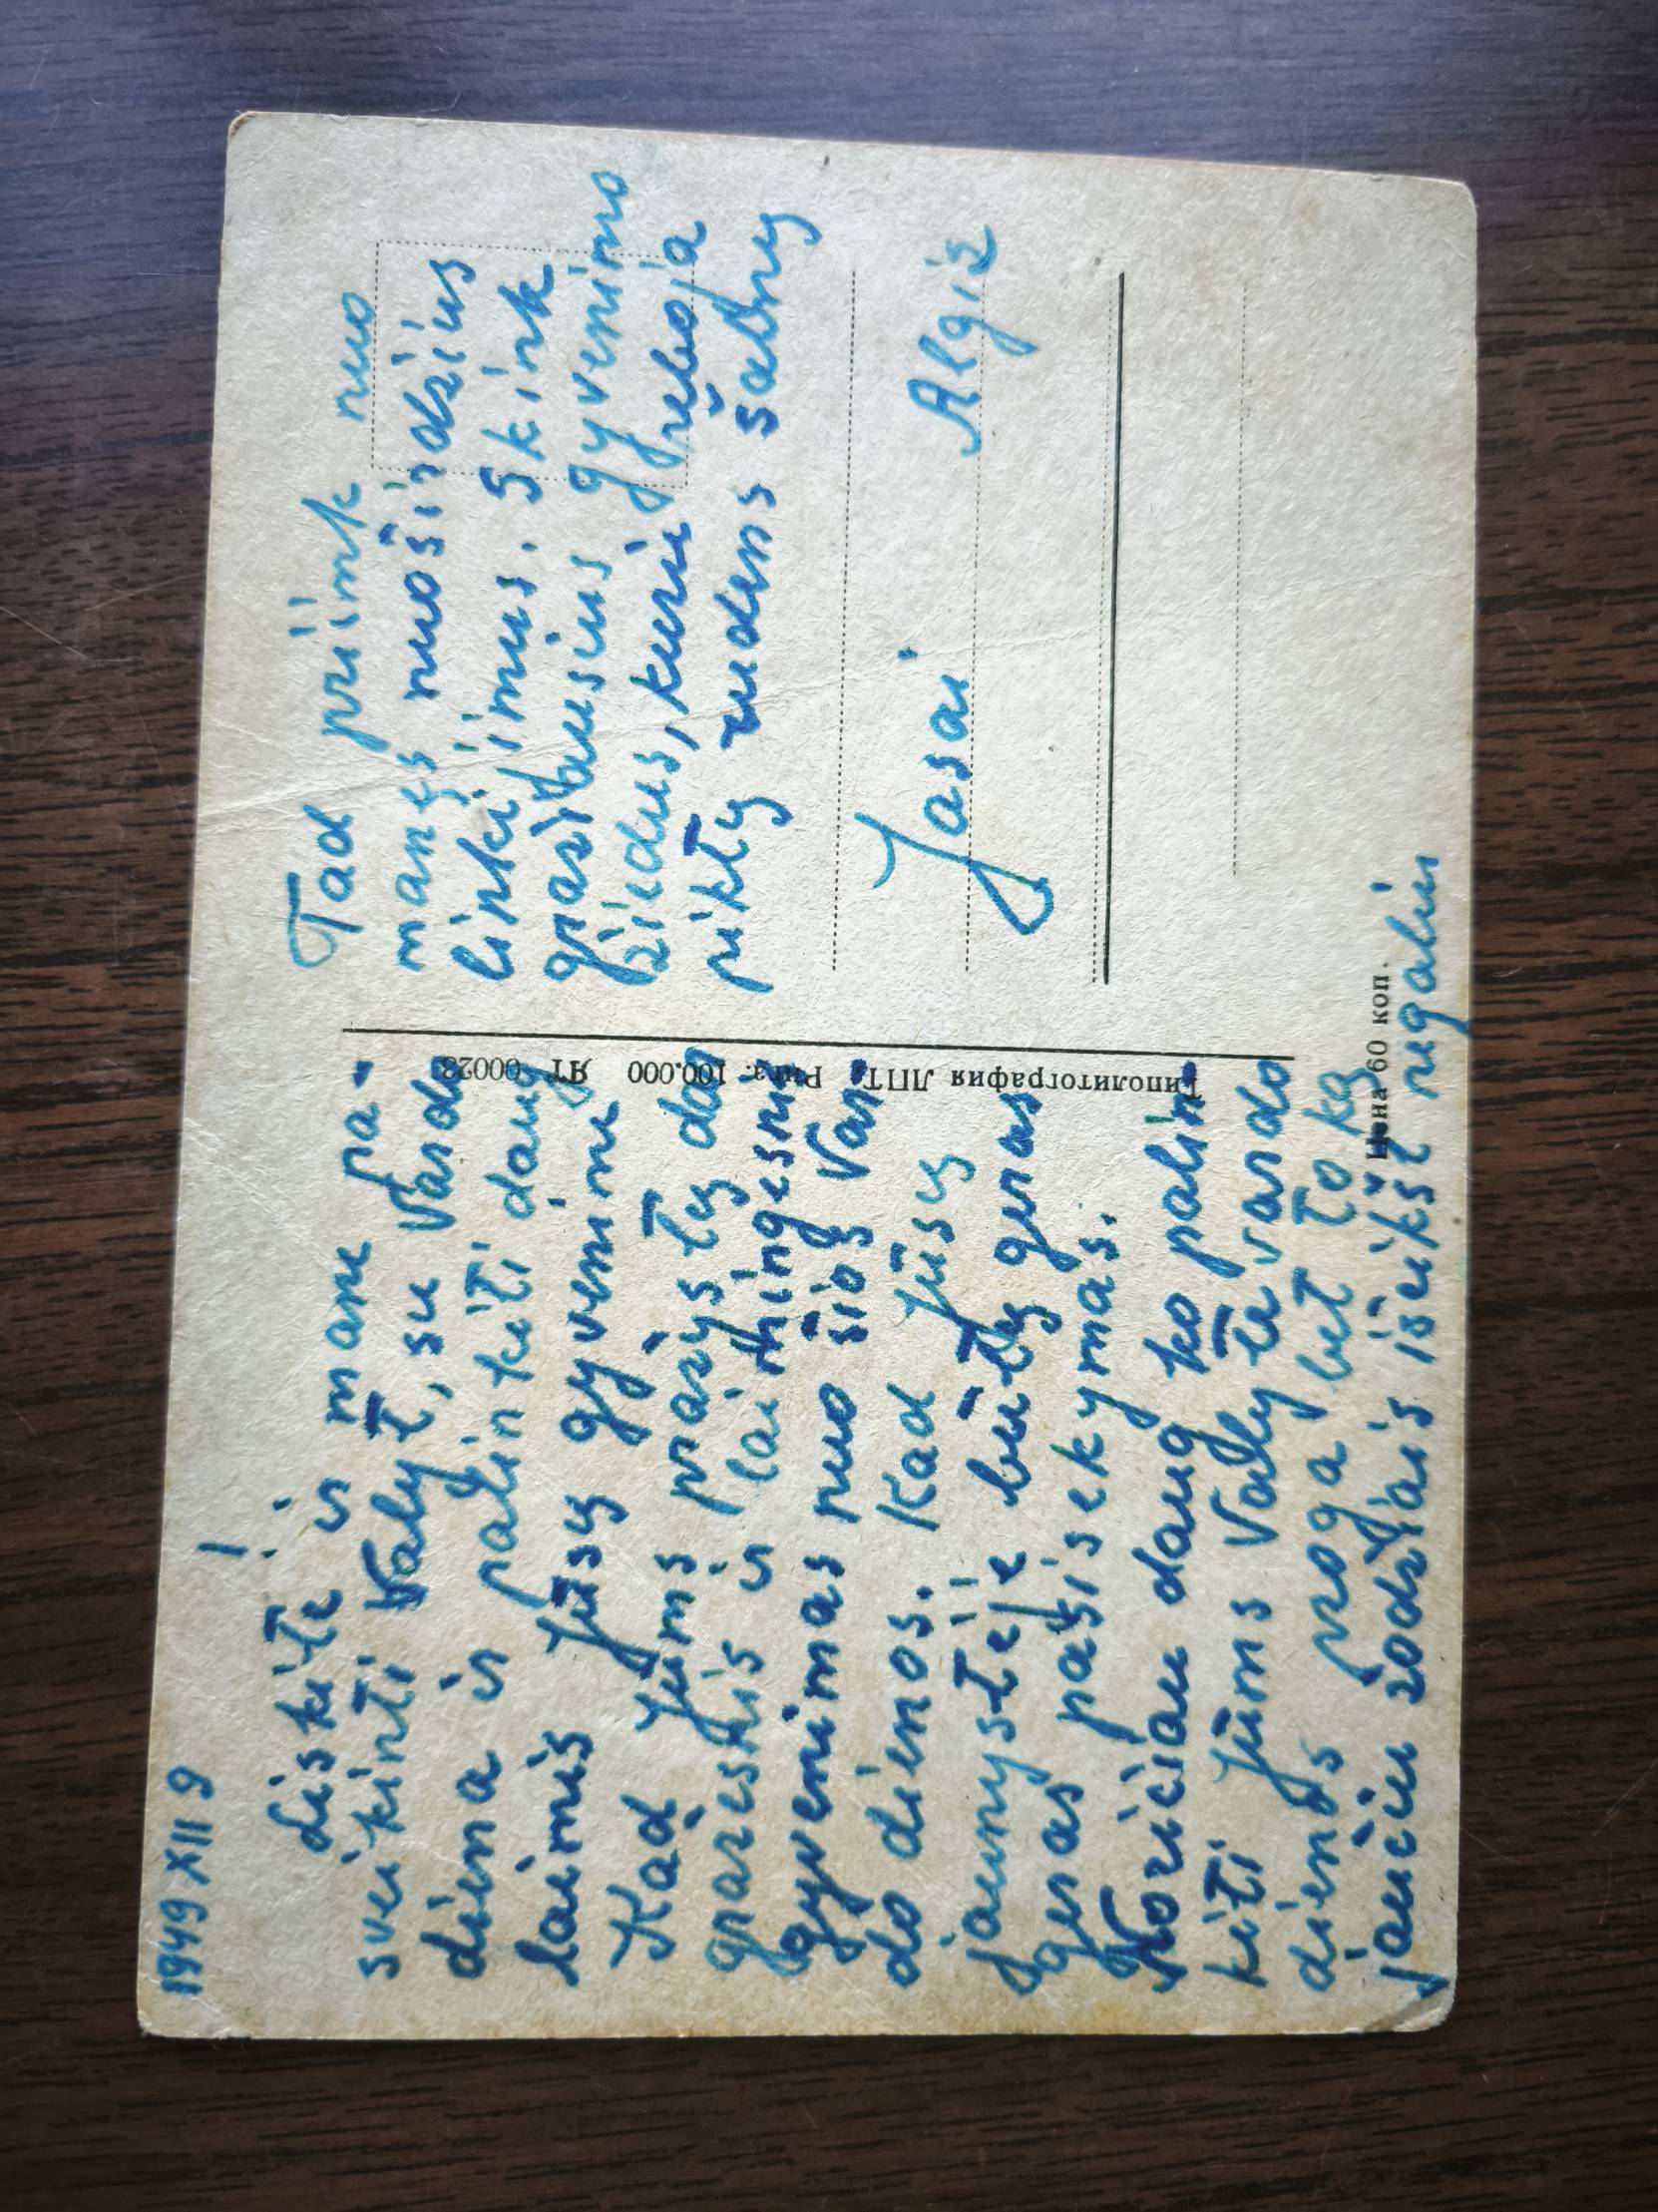 1949 XII 9
!
Liskite ir mane pa-
sveikinti Valyt, su Vardo
diena ir palinkėti daug
laimės Jūsų gyvenime
Kad Jums prašystų dar
grazesnis ir laimingesnis
gyvenimas nuo šios Var-
do dienos. Kad Jūsų
jaunystėje būtų geras
geras pasisekymas.
Noriciau daug ko palin-
kėti Jūms Valyte vardo
dienos proga bet to ką
jauciu zodziais isreikšt negaliu
Tad priimk nuo
manęs nuoširdzius
linkėjimus. Skink
graziausius gyvenimo
ziedus, kurie neboja
piktų rudens šalnų
Jasai Algis
Типолитография ЛПТ. Рига. 100.000 ЯТ 00023
Цена 60 коп.